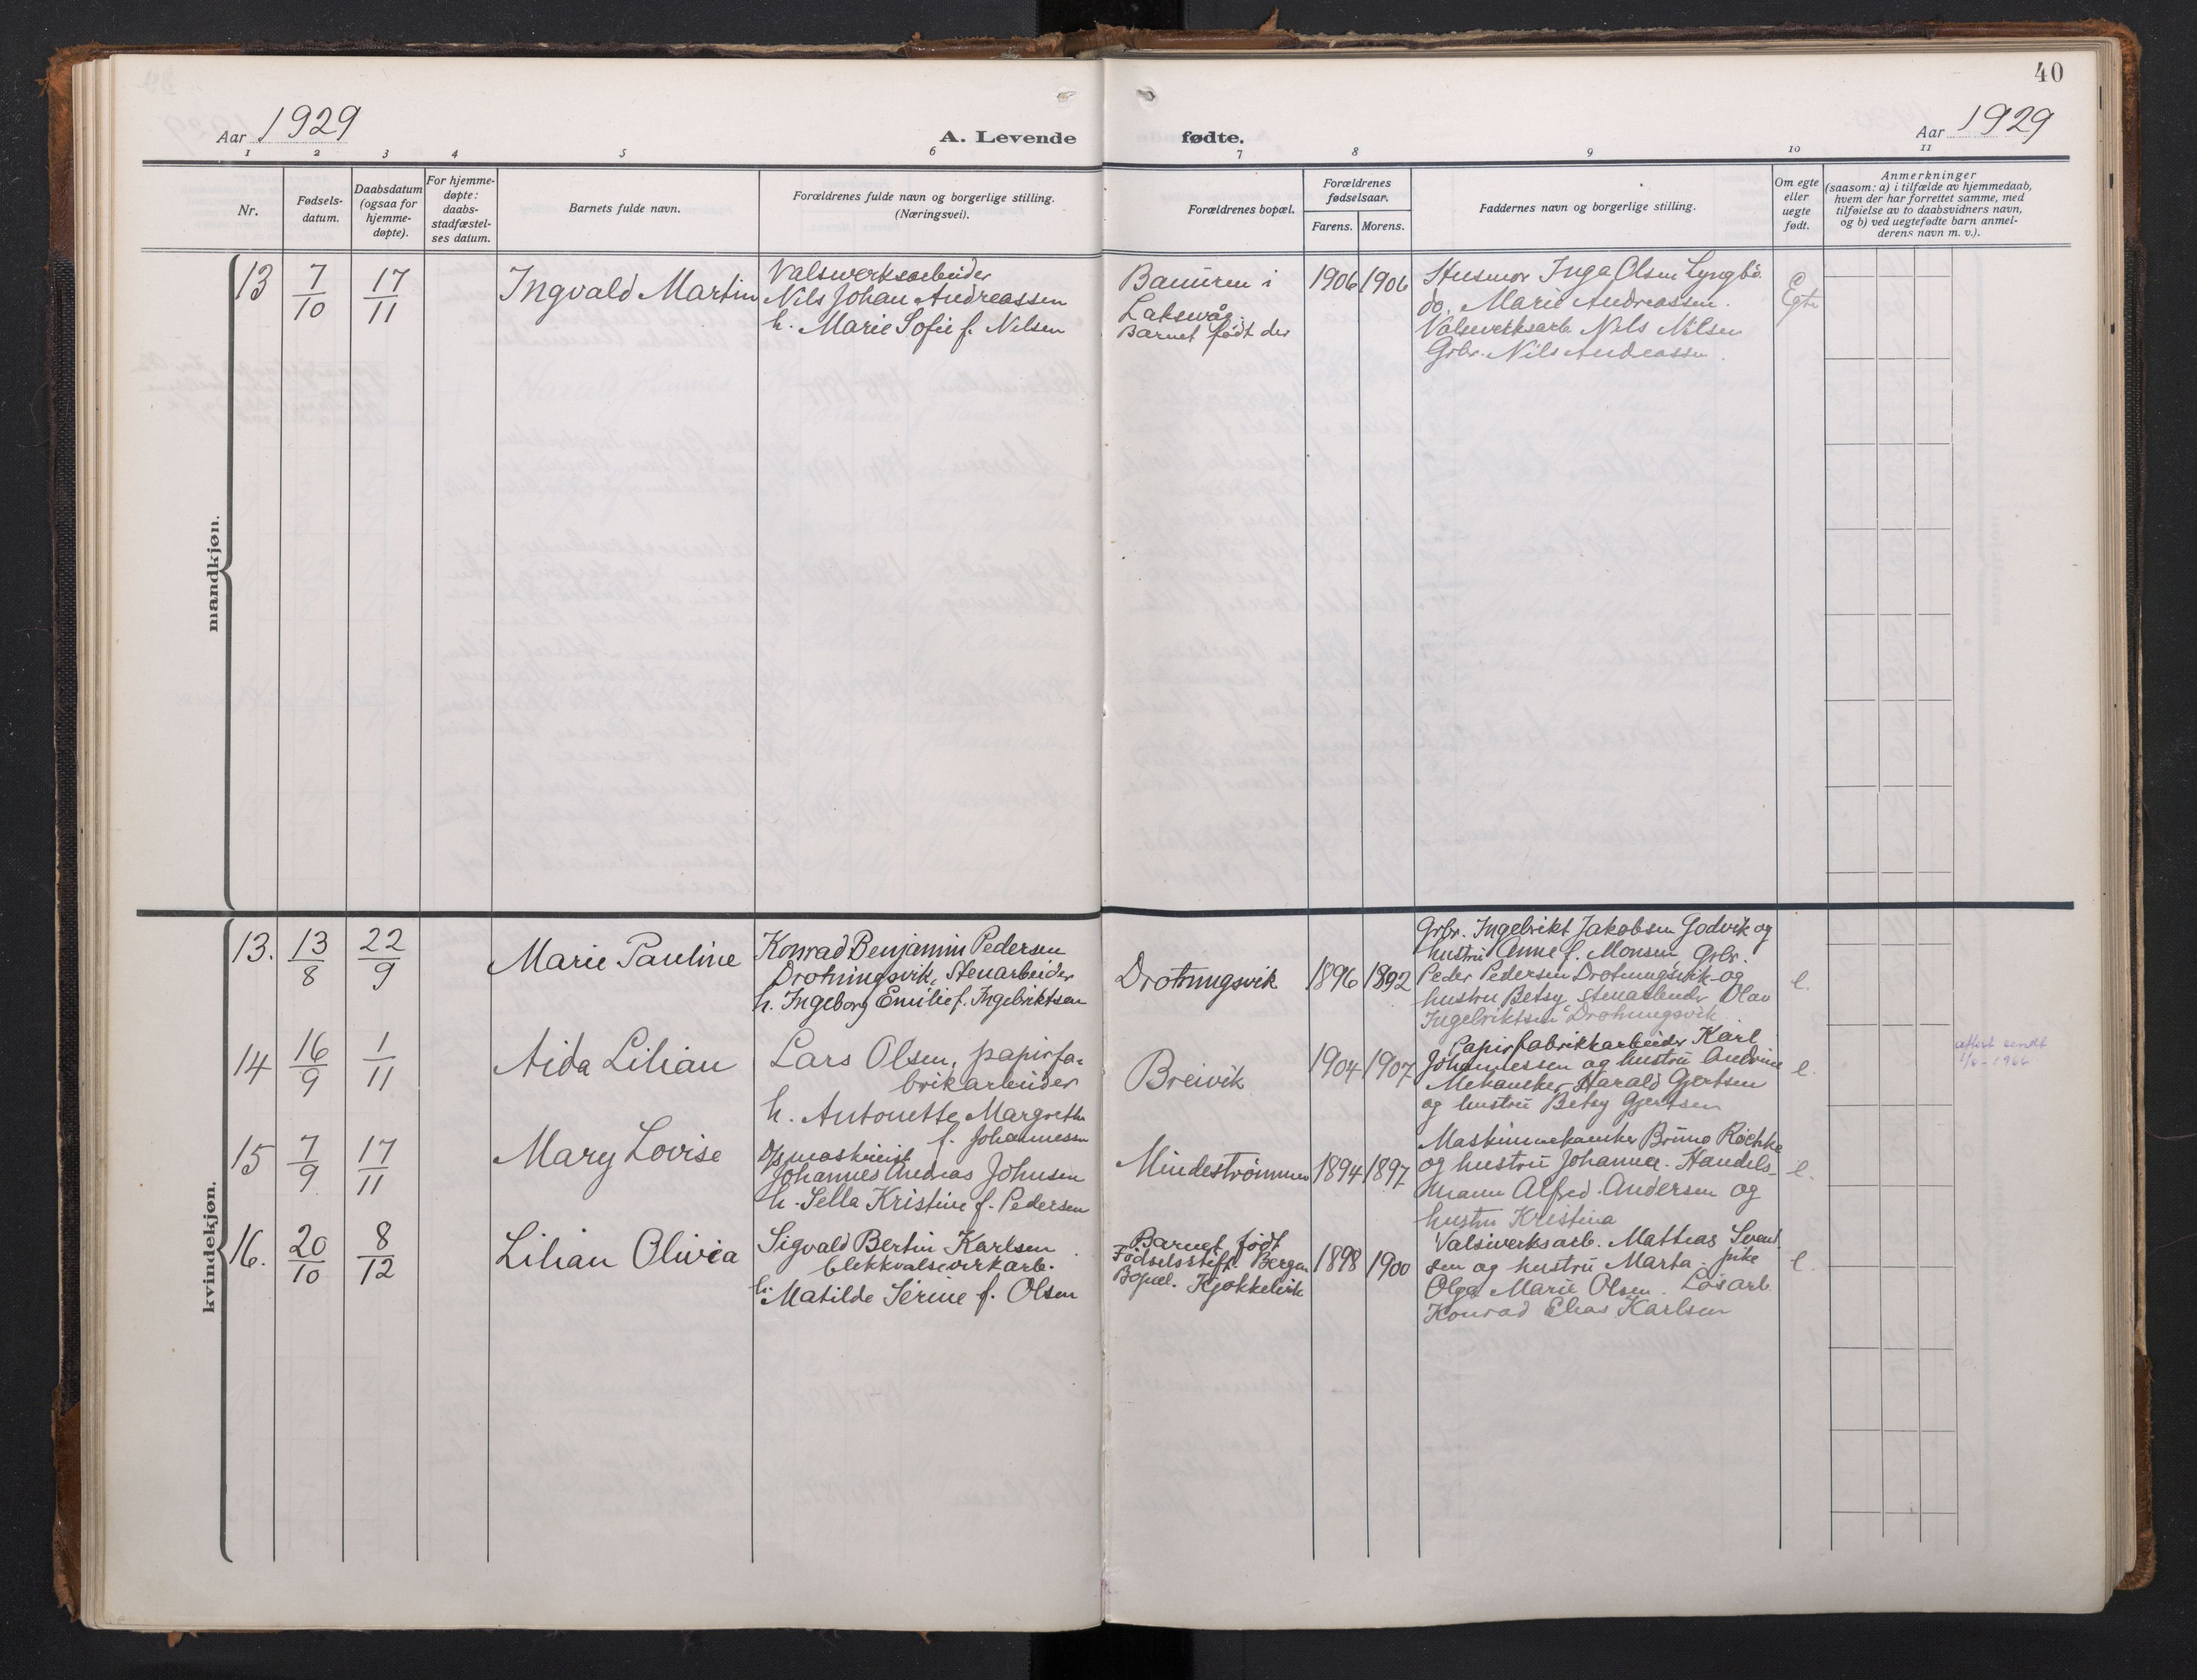 40
Aar 1929
A. Levende
fødte.
Aar 1929
1 2 3 4 5 6 7 8 9 10 11
Nr.
Fødsels-
datum.
Daabsdatum
(ogsaa for
hjemme-
døpte).
For hjemme-
døpte:
daabs-
stadfæstel-
ses datum.
Barnets fulde navn.
Forældrenes fulde navn og borgerlige stilling.
(Næringsvei).
Forældrenes bopæl.
Forældrenes
fødselsaar.
Farens. Morens.
Faddernes navn og borgerlige stilling.
Om egte
eller
uegte
født.
Anmerkninger
(saasom: a) i tilfælde av hjemmedaab,
hvem der har forrettet samme, med
tilføielse av to daabsvidners navn,
og b) ved uegtefødte barn anmel-
derens navn m. v.).
mandkjøn.
13
7/10
17/11
Ingvald Martin
Valsverksarbeider
Nils Johan Andreassen
h. Marie Sofie f. Nilsen
i
Laksevåg.
Barnet født der
1906
1906
Husmor Inga Olsen Lyngbø.
do. Marie Andreassen.
Valsverksarb. Nils Nilsen
Grbr. Nils Andreassen.
Egte
kvindekjøn.
13.
13/8
22/9
Marie Pauline
Konrad Benjamin Pedersen
Drotningsvik, Stenarbeider
h. Ingeborg Emilie f. Ingebriktsen
Drotningsvik
1896
1892
Grbr. Ingebrikt Jakobsen Godvik og
hustru Anne f. Monsen, Grbr.
Peder Pedersen Drotningsvik og
hustru Betsy, Stenarbeider Olav
Ingebriktsen Drotningsvik
e.
14
16/9
1/11
Aida Lilian
Lars Olsen, papirfa-
brikarbeider
h. Antonette Margrethe
f. Johannessen
Breivik
1904
1907
Papirfabrikkarbeider Karl
Johannessen og hustru Andrine
Mekaniker Harald Gjertsen
og hustru Betsy Gjertsen
e.
attest sendt
1966
15
7/9
17/11
Mary Lovise
D/s maskinist
Johannes Andreas Johnsen
h. Sella Kristine f. Pedersen
Mindestrømmen
1894
1897
Maskinmekaniker Bruno
og hustru Johanna. Handels-
mann Alfred Andersen og
hustru Kristina
e.
16.
20/10
8/12
Lilian Olivia
Sigvald Bertin Karlsen
blekkvalseverkarb.
h. Matilde Serine f. Olsen
Barnet født
Fødselsstift. Bergen
Bopæl. Kjøkkelvik
1898
1900
Valsverksarb. Mattias Svend-
sen og hustru Marta. pike
Olga Marie Olsen. Løsarb.
Konrad Elias Karlsen
e.